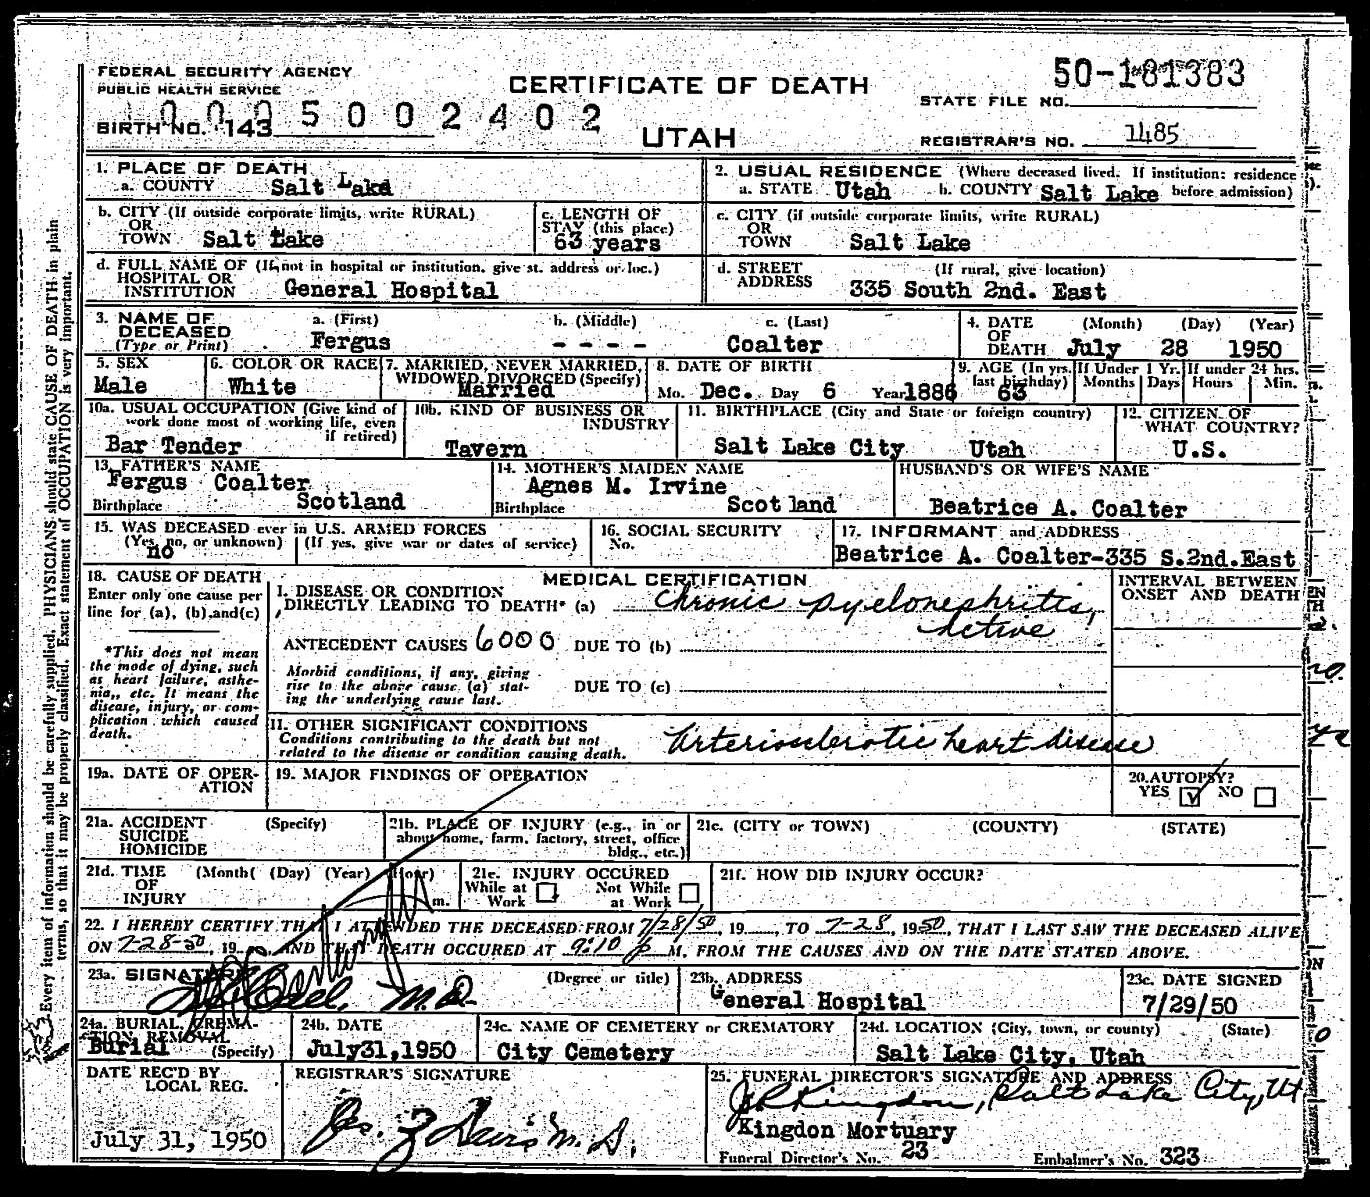 FEDERAL SECURITY AGENCY
PUBLIC HEALTH SERVICE
CERTIFICATE OF DEATH
UTAH
50-181383
STATE FILE NO.
REGISTRAR'S NO. 1485
1 0 0 0 5 0 0 2 4 0 2
BIRTH NO. 143
1. PLACE OF DEATH
a. COUNTY Salt Lake
2. USUAL RESIDENCE (Where deceased lived. If institution: residence before admission)
a. STATE Utah b. COUNTY Salt Lake
b. CITY (If outside corporate limits, write RURAL)
OR TOWN Salt Lake
c. LENGTH OF STAY (this place)
63 years
c. CITY (if outside corporate limits, write RURAL)
OR TOWN Salt Lake
d. FULL NAME OF (If not in hospital or institution, give st. address or loc.)
HOSPITAL OR INSTITUTION General Hospital
d. STREET ADDRESS (If rural, give location)
335 South 2nd. East
3. NAME OF DECEASED (Type or Print)
a. (First) b. (Middle) c. (Last)
Fergus - - - - Coalter
4. DATE OF DEATH (Month) (Day) (Year)
July 28 1950
5. SEX
Male
6. COLOR OR RACE
White
7. MARRIED, NEVER MARRIED, WIDOWED, DIVORCED (Specify)
Married
8. DATE OF BIRTH
Mo. Dec. Day 6 Year 1886
9. AGE (In yrs. last birthday)
63
If Under 1 Yr. Months Days
If under 24 hrs. Hours Min.
10a. USUAL OCCUPATION (Give kind of work done most of working life, even if retired)
Bar Tender
10b. KIND OF BUSINESS OR INDUSTRY
Tavern
11. BIRTHPLACE (City and State or foreign country)
Salt Lake City Utah
12. CITIZEN OF WHAT COUNTRY?
U.S.
13. FATHER'S NAME
Fergus Coalter
Birthplace Scotland
14. MOTHER'S MAIDEN NAME
Agnes M. Irvine
Birthplace Scotland
HUSBAND'S OR WIFE'S NAME
Beatrice A. Coalter
15. WAS DECEASED ever in U.S. ARMED FORCES
(Yes, no, or unknown) (If yes, give war or dates of service)
no
16. SOCIAL SECURITY No.
17. INFORMANT and ADDRESS
Beatrice A. Coalter-335 S.2nd.East
18. CAUSE OF DEATH
Enter only one cause per line for (a), (b), and (c)
*This does not mean the mode of dying, such as heart failure, asthenia, etc. It means the disease, injury, or complication which caused death.
MEDICAL CERTIFICATION
I. DISEASE OR CONDITION DIRECTLY LEADING TO DEATH* (a) Chronic pyelonephritis, Active
ANTECEDENT CAUSES 6000 DUE TO (b)
Morbid conditions, if any, giving rise to the above cause (a) stating the underlying cause last.
DUE TO (c)
II. OTHER SIGNIFICANT CONDITIONS
Conditions contributing to the death but not related to the disease or condition causing death.
Arteriosclerotic heart disease
INTERVAL BETWEEN ONSET AND DEATH
19a. DATE OF OPERATION
19. MAJOR FINDINGS OF OPERATION
20. AUTOPSY?
YES ☑ NO ☐
21a. ACCIDENT SUICIDE HOMICIDE (Specify)
21b. PLACE OF INJURY (e.g., in or about home, farm, factory, street, office bldg., etc.)
21c. (CITY or TOWN) (COUNTY) (STATE)
21d. TIME OF INJURY (Month) (Day) (Year) (Hour) m.
21e. INJURY OCCURED
While at Work ☐ Not While at Work ☐
21f. HOW DID INJURY OCCUR?
22. I HEREBY CERTIFY THAT I ATTENDED THE DECEASED FROM 7/28/50, 19__, TO 7-28, 1950, THAT I LAST SAW THE DECEASED ALIVE
ON 7-28-50, 19__ AND THAT DEATH OCCURED AT 9:10 p M. FROM THE CAUSES AND ON THE DATE STATED ABOVE.
23a. SIGNATURE (Degree or title)
M.D.
23b. ADDRESS
General Hospital
23c. DATE SIGNED
7/29/50
24a. BURIAL, CREMATION REMOVAL (Specify)
Burial
24b. DATE
July31,1950
24c. NAME OF CEMETERY or CREMATORY
City Cemetery
24d. LOCATION (City, town, or county) (State)
Salt Lake City, Utah
DATE REC'D BY LOCAL REG.
July 31, 1950
REGISTRAR'S SIGNATURE
25. FUNERAL DIRECTOR'S SIGNATURE AND ADDRESS
J R Kingdon, Salt Lake City, Ut
Kingdon Mortuary
Funeral Director's No. 23 Embalmer's No. 323
Every item of information should be carefully supplied. PHYSICIANS should state CAUSE OF DEATH in plain
terms, so that it may be properly classified. Exact statement of OCCUPATION is very important.